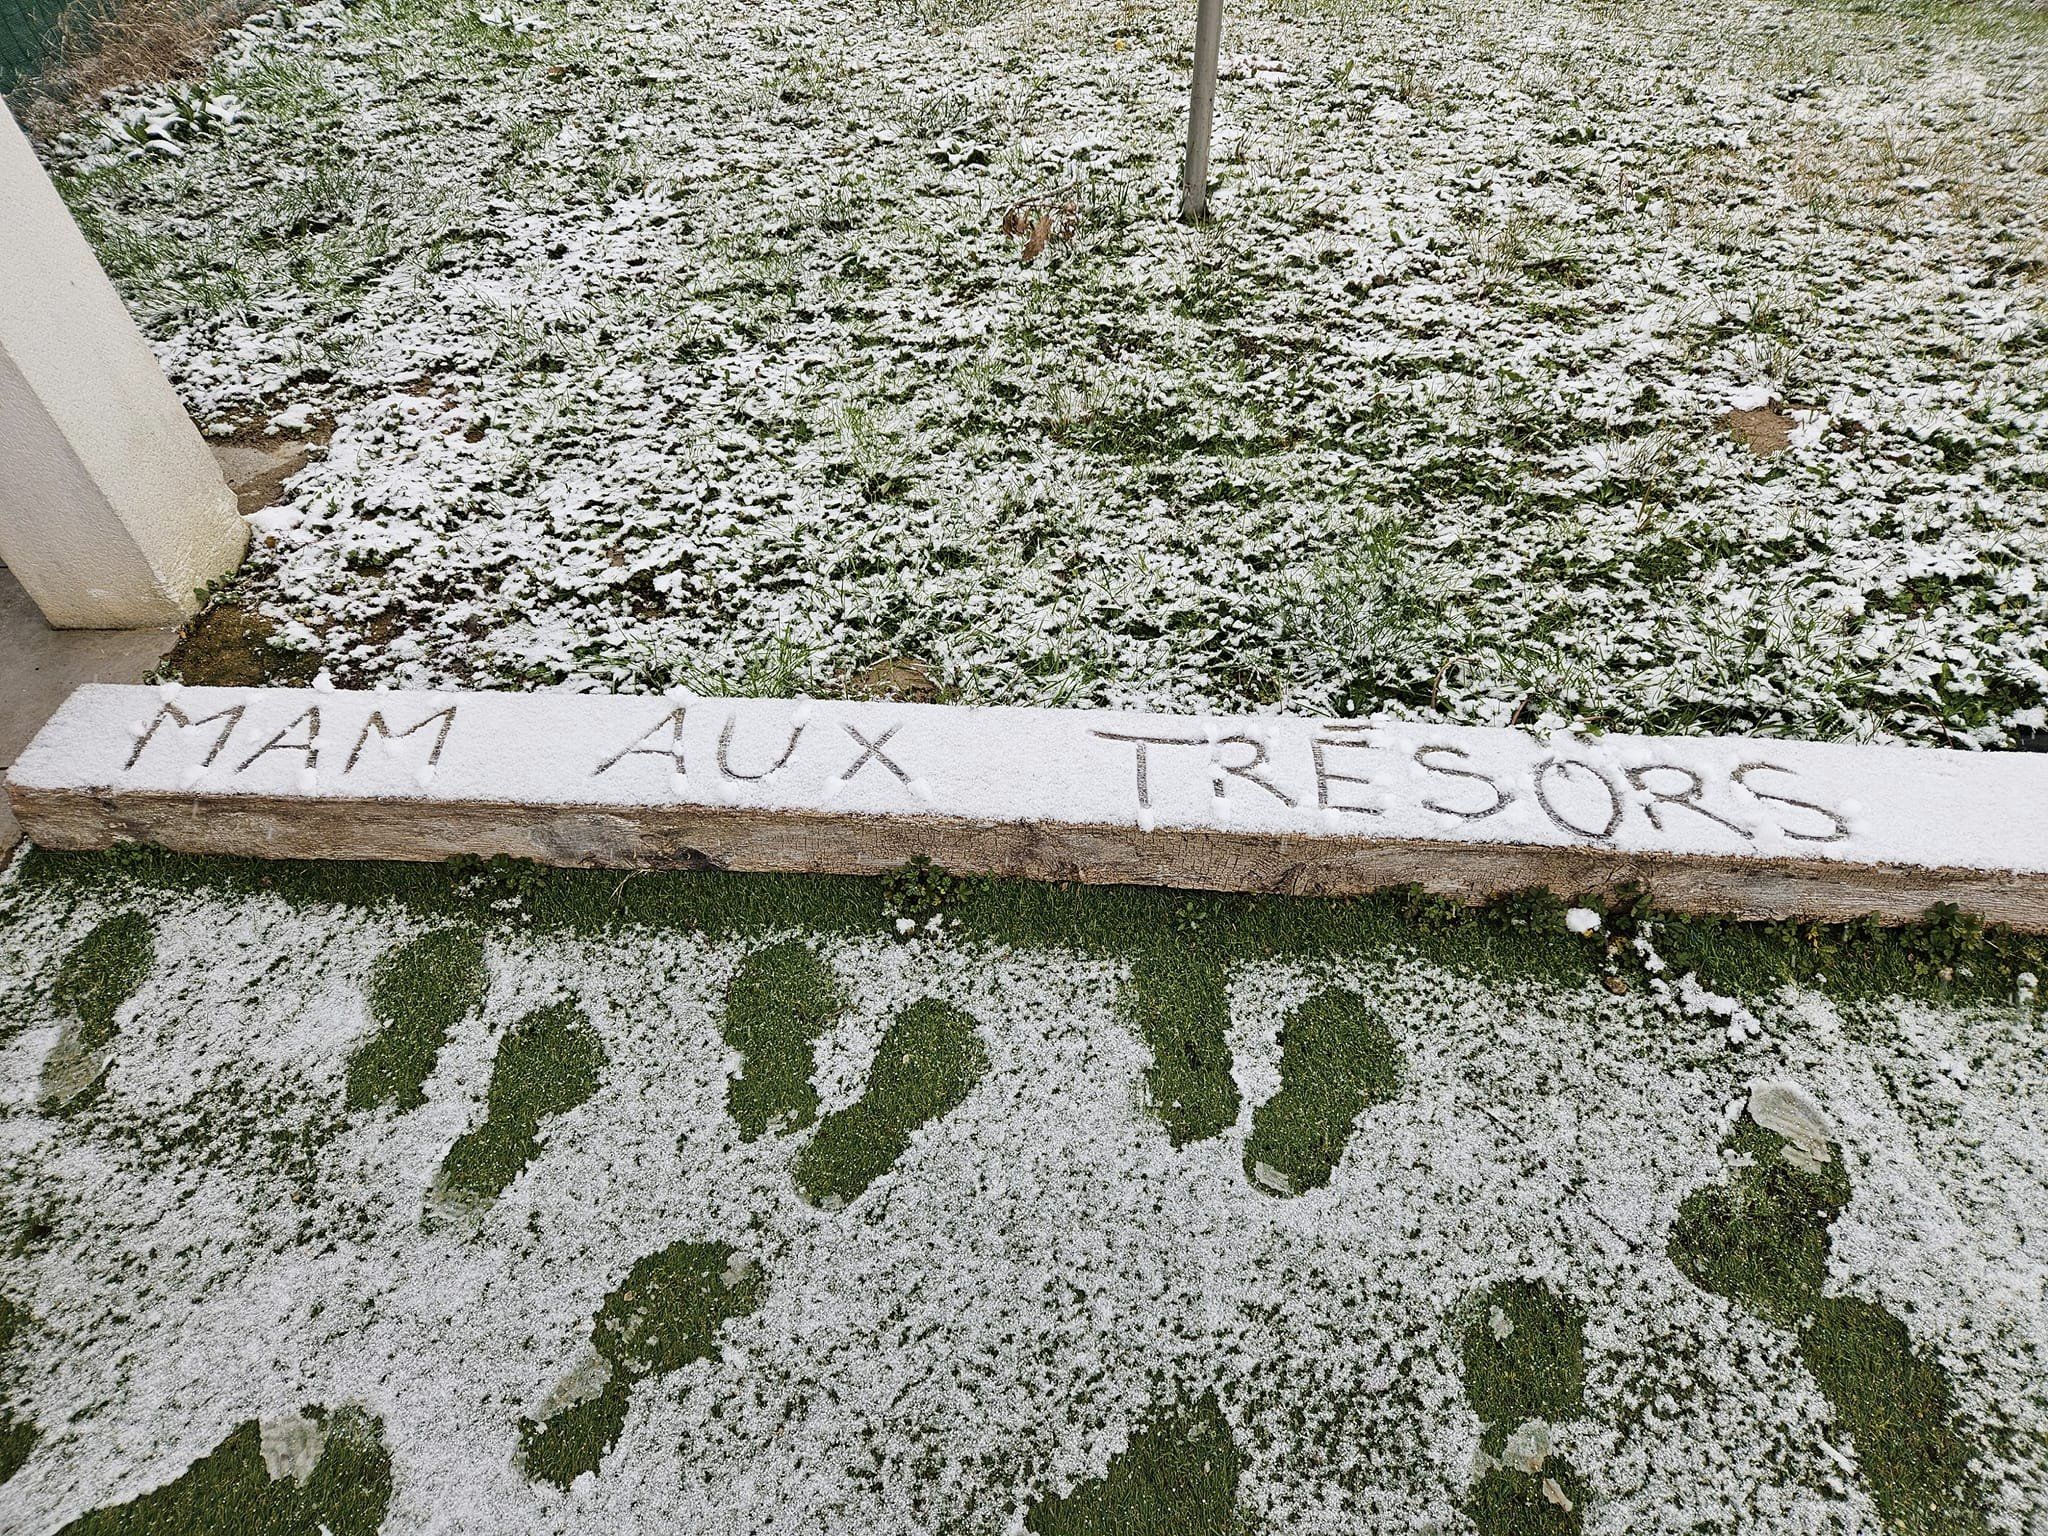 MAM AUX TRÉSORS